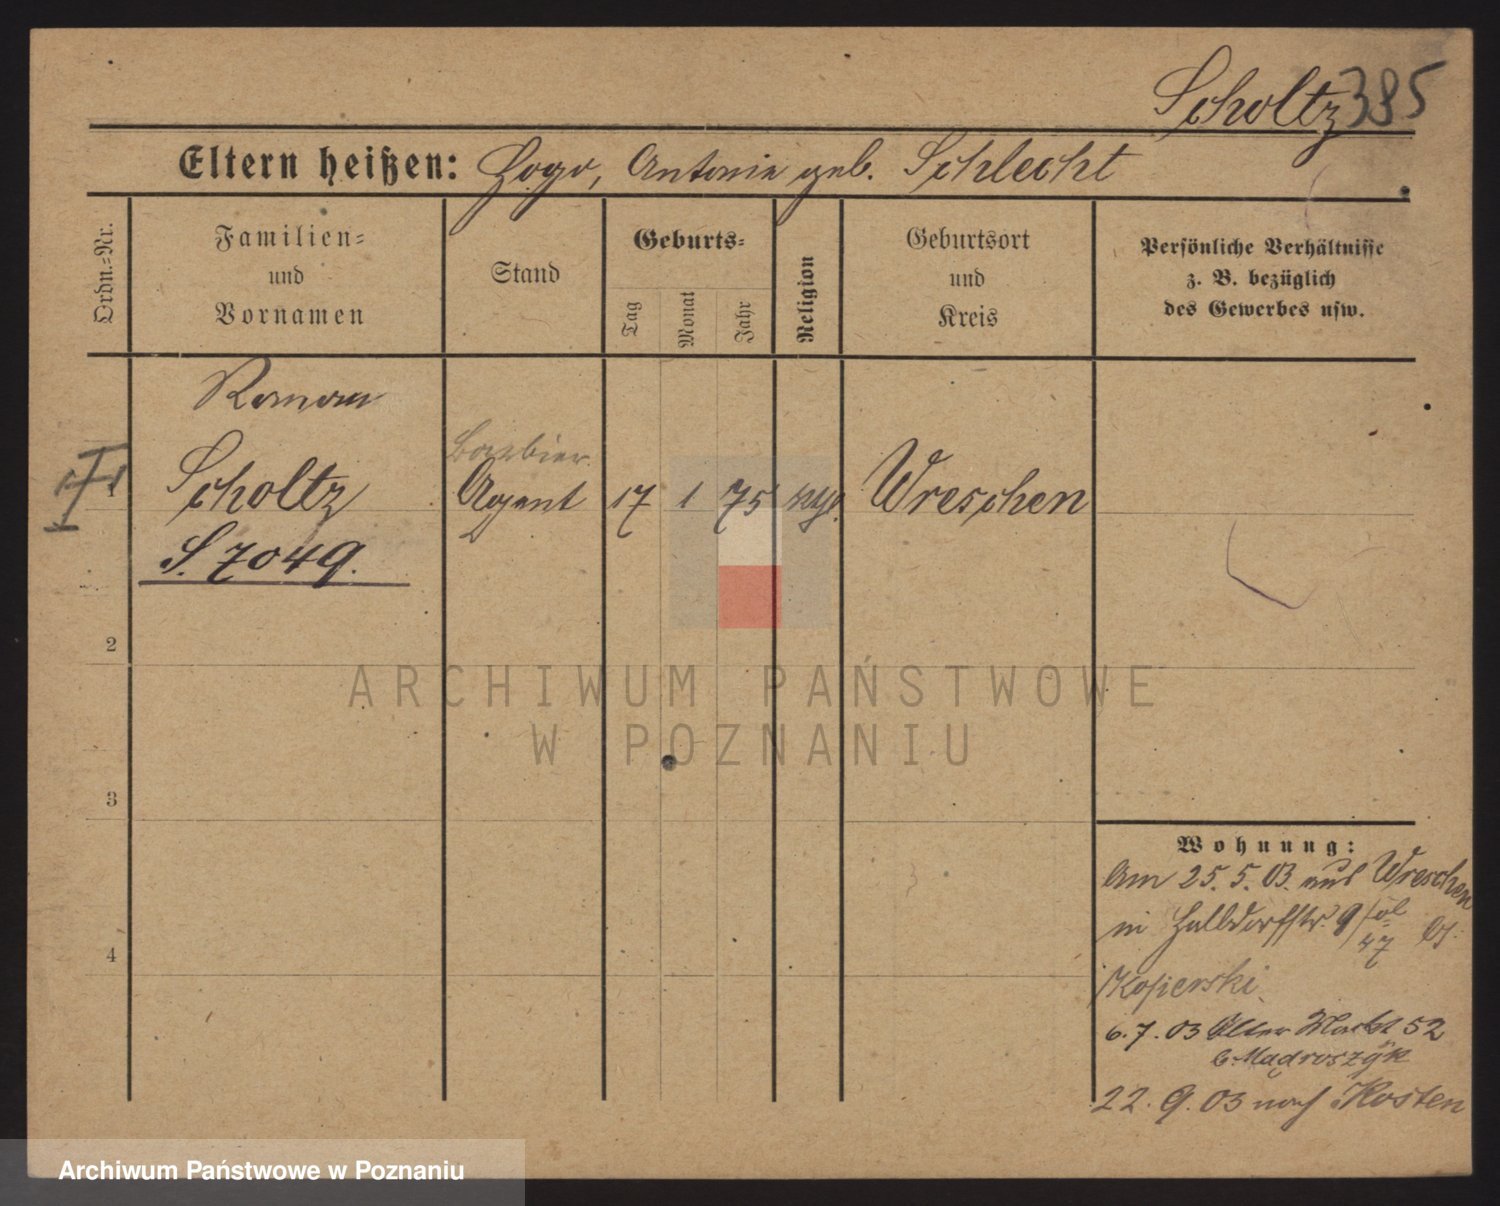 Scholtz 385
Eltern heißen: Hugo, Antonie geb. Schlecht
Ordn.=Nr.
Familien=
und
Vornamen
Stand
Geburts=
Tag
Monat
Jahr
Religion
Geburtsort
und
Kreis
Persönliche Verhältnisse
z. B. bezüglich
des Gewerbes usw.
Roman
Barbier
1 Scholtz Agent 17 1 75 Wreschen
S. 7049.
2
3
4
ARCHIWUM PAŃSTWOWE
W POZNANIU
Wohnung:
Am 25. 5. 03. aus Wreschen
in Halldorfstr. 9
6. 7. 03 Alter Markt 52
b. Mądroszyk
22. 9. 03 nach Kosten
Archiwum Państwowe w Poznaniu